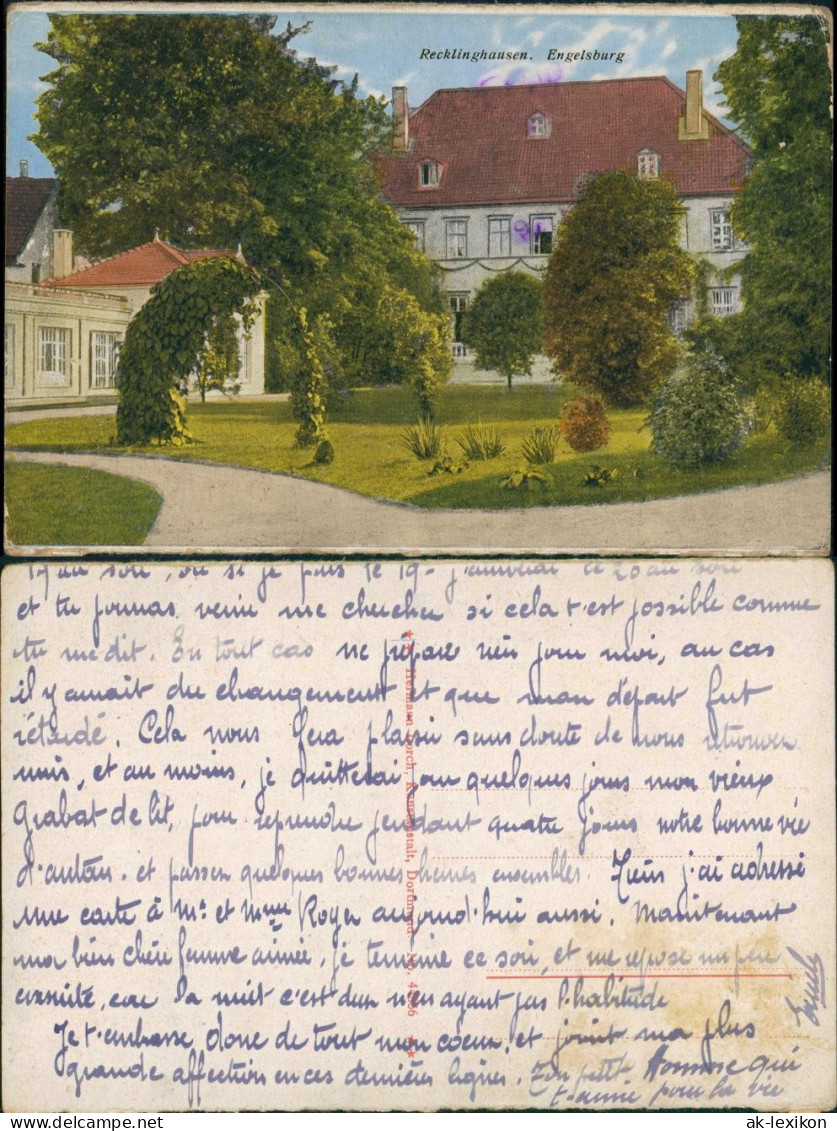 Recklinghausen. Engelsburg
19 au soir, ou si je pars le 19- j'arriverai le 20 au soir
et tu pourras venir me chercher si cela t'est possible comme
tu me dit. En tout cas ne prépare rien pour moi, au cas
il y aurait du changement et que mon départ fut
retardé. Cela nous fera plaisir sans doute de nous retrouver
unis, et au moins, je quitterai pour quelques jours mon vieux
grabat de lit, pour reprendre pendant quatre jours notre bonne vie
d'autan. et passer quelques bonnes heures ensembles. Tiens j'ai adressé
une carte à Mr. et Mme Roger aujourd'hui aussi. Maintenant
ma bien chère femme aimée, je termine ce soir, et me repose un peu
ensuite, car la nuit c'est dur n'en ayant pas l'habitude
Je t'embrasse donc de tout mon coeur, et joint ma plus
grande affection en ces dernières lignes. Ton petit Homme qui
t'aime pour la vie
Hermann Lorch, Kunstanstalt, Dortmund
www.ak-lexikon.com